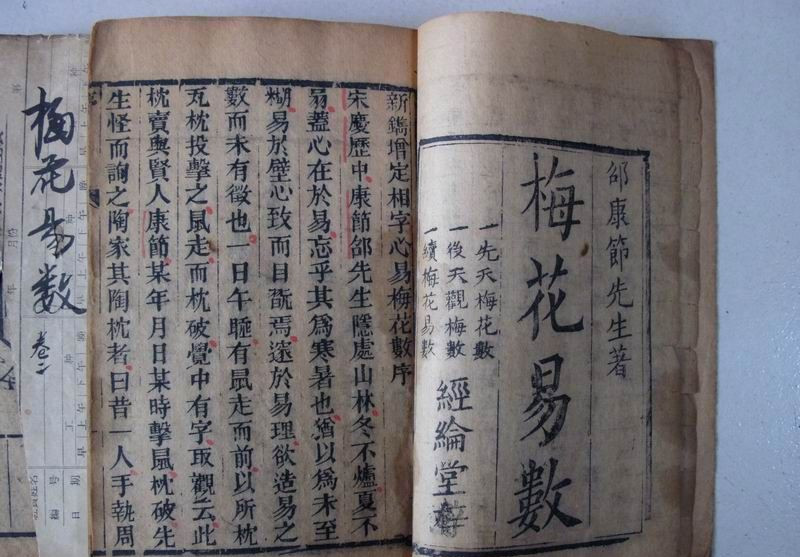 邵康節先生著
梅花易數
一先天梅花數
一後天觀梅數
一續梅花易數
經綸堂
新鐫增定相字心易梅花數序
宋慶歷中康節邵先生隱處山林冬不爐夏不
扇蓋心在於易忘乎其爲寒暑也猶以爲未至
糊易於壁心致而目翫焉邃於易理欲造易之
數而未有徵也一日午睡有鼠走而前以所枕
瓦枕投擊之鼠走而枕破覺中有字取觀云此
枕賣與賢人康節某年月日某時擊鼠枕破先
生怪而詢之陶家其陶枕者曰昔一人手執周
梅花易數 卷二